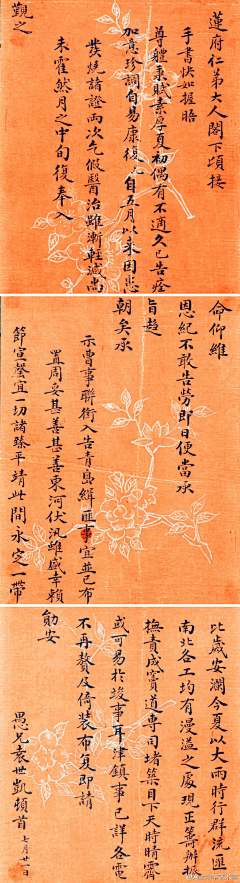 蓮府仁弟大人閣下頃接
手書快如握晤
尊體稟賦素厚夏初偶有不適久已告痊
加意珍調自易康復兄自五月以來因患
發燒諸證兩次乞假醫治雖漸輕減尚
未霍然月之中旬復奉入
覲之
命仰維
恩紀不敢告勞即日便當承
旨趨
朝矣承
示曹事聯銜入告青島緝匪事宜並已布
置周妥甚善甚善東河伏汛雖盛幸賴
節宣罄宜一切諸臻平靖此間永定一帶
比歲安瀾今夏以大雨時行群流匯
南北各工均有漫溢之處現正籌辦振
撫責成竇道專司堵築目下天時晴霽
或可易於竣事耳津鎮事已詳各電
不再贅及倚裝布复即請
勛安
愚兄袁世凱頓首 七月廿一日